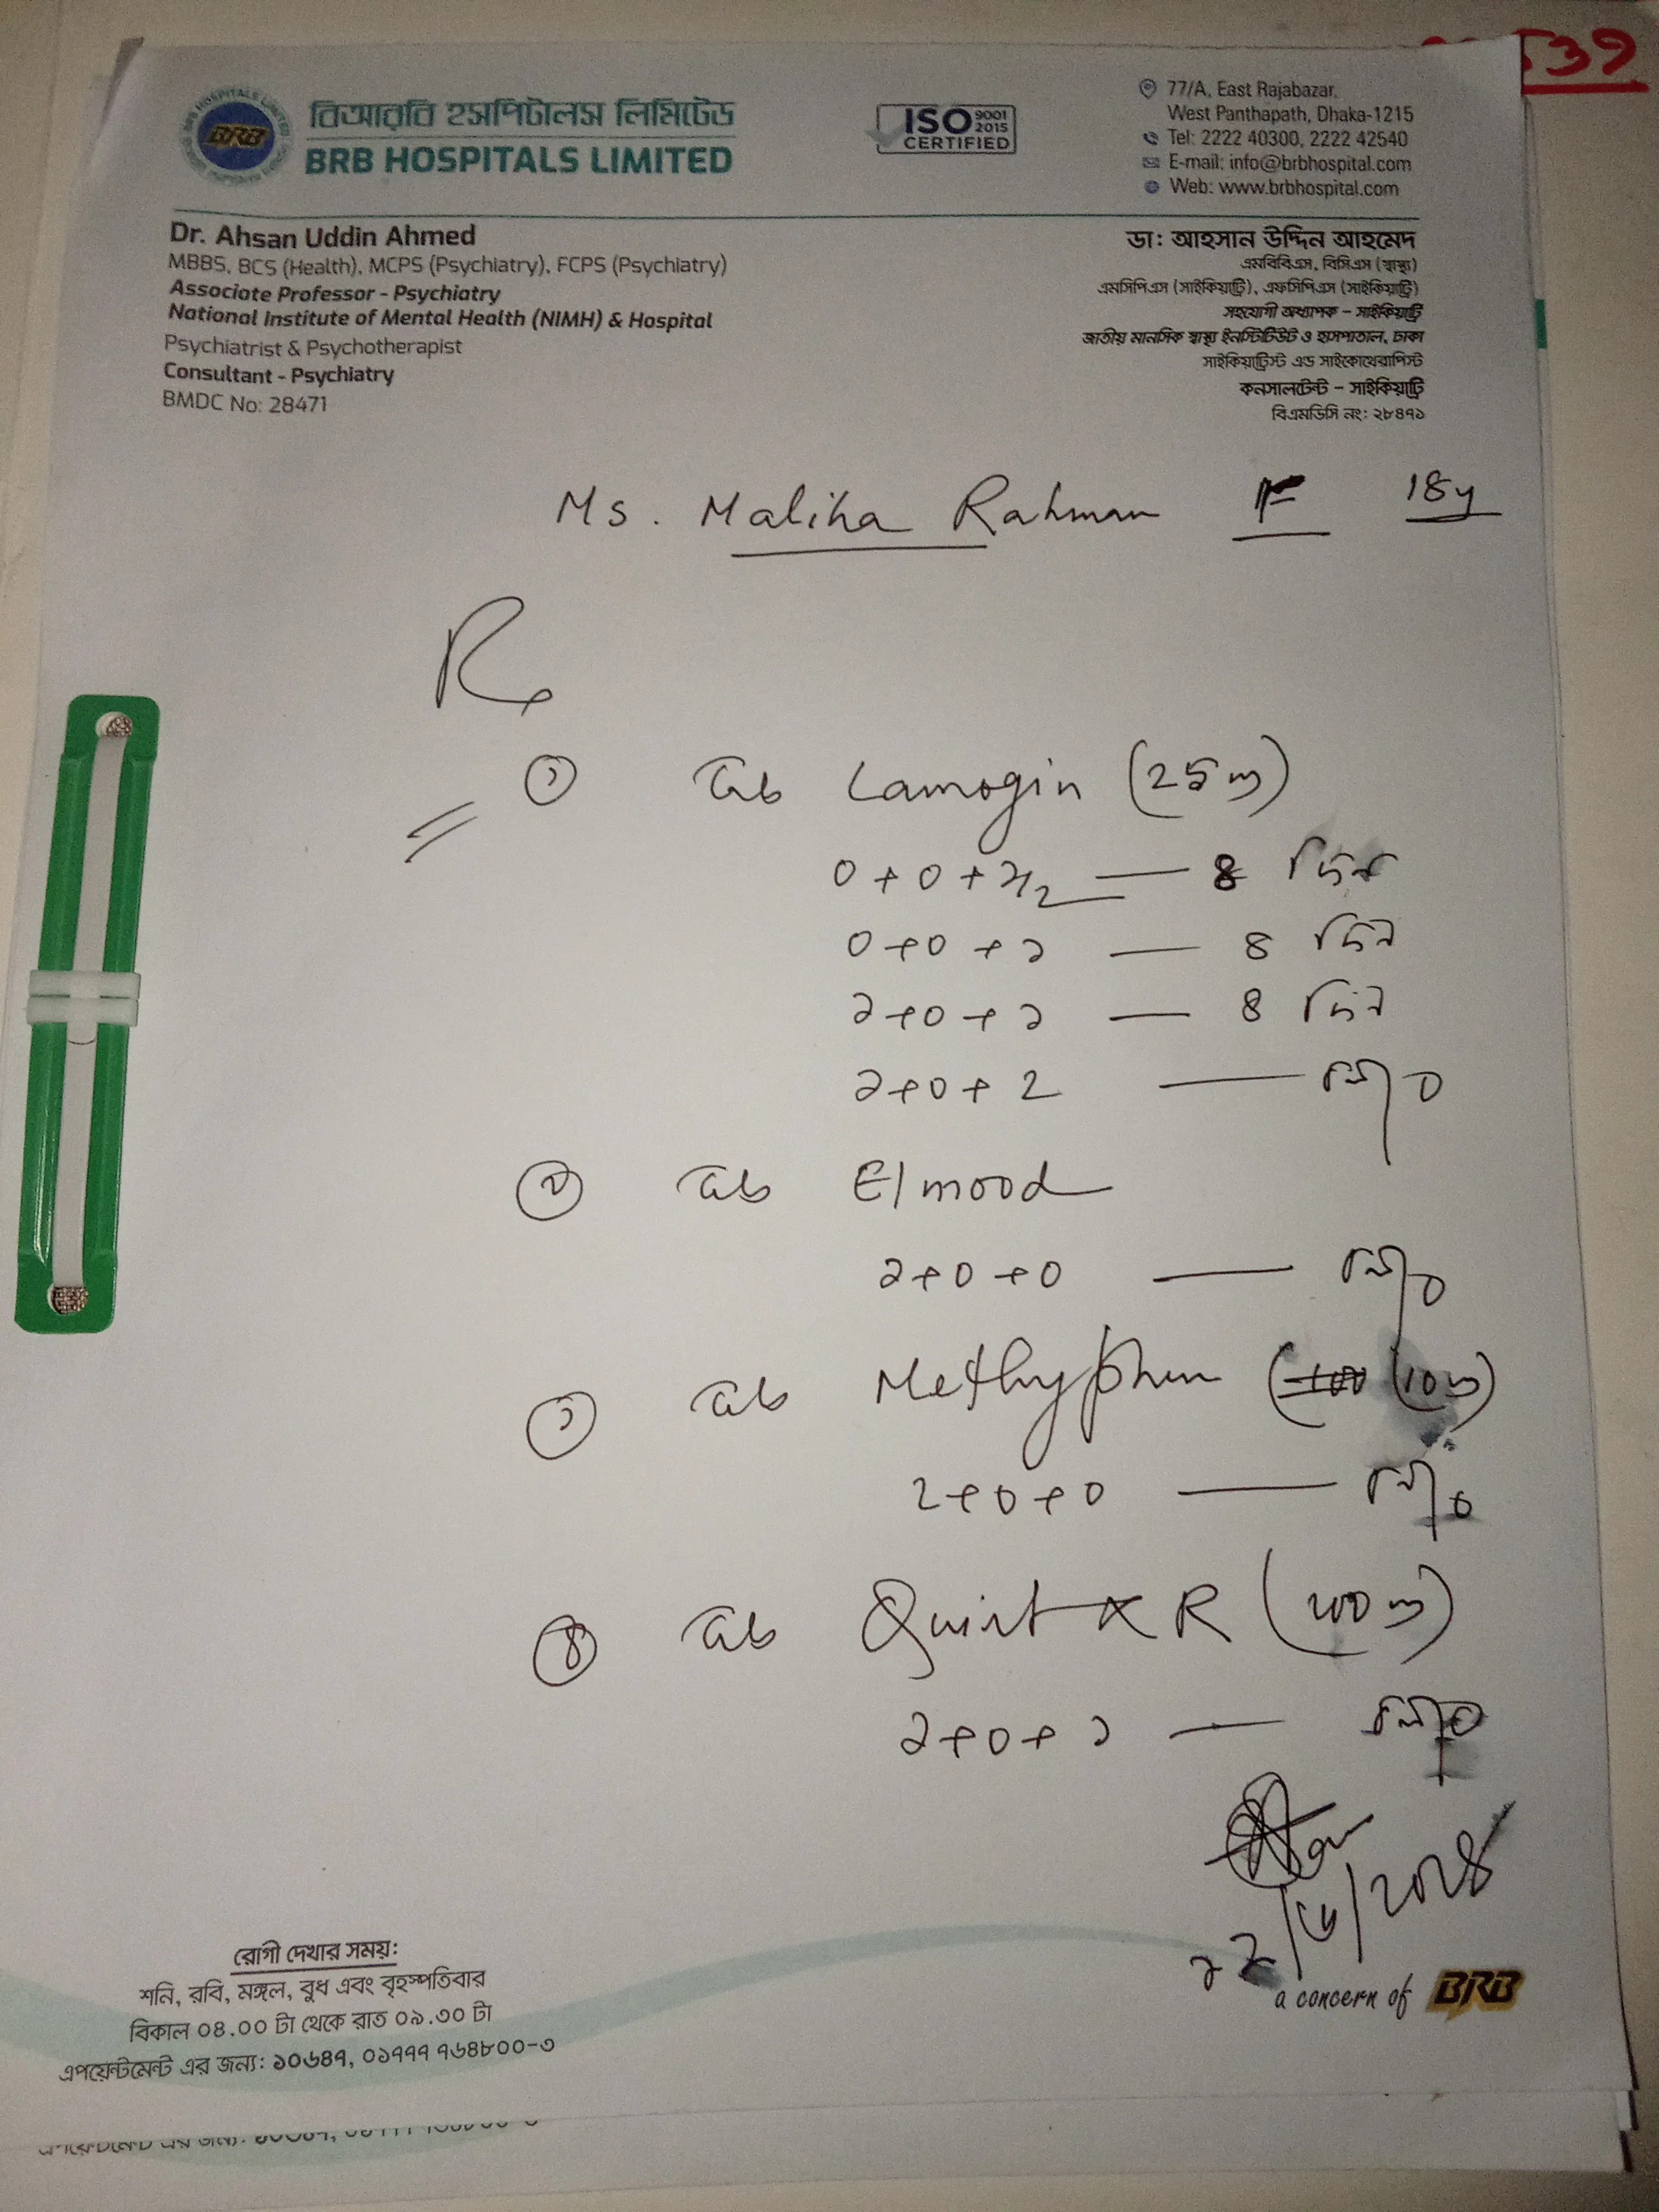 539
বিআরবি হসপিটালস লিমিটেড
BRB HOSPITALS LIMITED
BRB
ISO 9001 2015
CERTIFIED
77/A, East Rajabazar,
West Panthapath, Dhaka-1215
Tel: 2222 40300, 2222 42540
E-mail: info@brbhospital.com
Web: www.brbhospital.com
Dr. Ahsan Uddin Ahmed
MBBS, BCS (Health), MCPS (Psychiatry), FCPS (Psychiatry)
Associate Professor - Psychiatry
National Institute of Mental Health (NIMH) & Hospital
Psychiatrist & Psychotherapist
Consultant - Psychiatry
BMDC No: 28471
ডা: আহসান উদ্দিন আহমেদ
এমবিবিএস, বিসিএস (স্বাস্থ্য)
এমসিপিএস (সাইকিয়াট্রি), এফসিপিএস (সাইকিয়াট্রি)
সহযোগী অধ্যাপক – সাইকিয়াট্রি
জাতীয় মানসিক স্বাস্থ্য ইনস্টিটিউট ও হাসপাতাল, ঢাকা
সাইকিয়াট্রিস্ট এন্ড সাইকোথেরাপিস্ট
কনসালটেন্ট – সাইকিয়াট্রি
বিএমডিসি নং: ২৮৪৭১
Ms. Maliha Rahman F 18y
Rx
১ Tab Lamogin (25 m)
0 + 0 + ১/২ — ৪ দিন
0 + 0 + ১ — ৪ দিন
১ + 0 + ১ — ৪ দিন
১ + 0 + 2
২ Tab Elmood
১ + 0 + 0
Tab Methyphen (10 m)
0 + 0
৪ Tab XR (200 m)
১ + 0 + ১
রোগী দেখার সময়:
শনি, রবি, মঙ্গল, বুধ এবং বৃহস্পতিবার
বিকাল ০৪.০০ টা থেকে রাত ০৯.৩০ টা
এপয়েন্টমেন্ট এর জন্য: ১০৬৪৭, ০১৭৭৭ ৭৬৪৮০০-৩
a concern of BRB